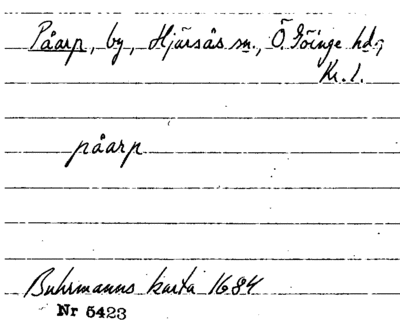 Påarp, by, Hjärsås sn., Ö. Göinge hd.,
Kr. l.
påarp
Buhrmanns karta 1684
Nr 5423